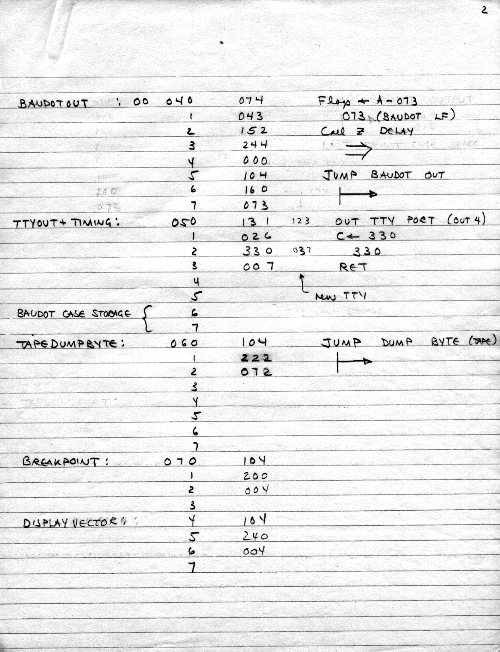 2
BAUDOTOUT : 00 040 074 Flags ← A-073
1 043 073 (BAUDOT LF)
2 152 Call Z DELAY
3 244
4 000
5 104 JUMP BAUDOT OUT
6 160
7 073
TTYOUT + TIMING: 050 131 123 OUT TTY PORT (OUT 4)
1 026 C ← 330
2 330 037 330
3 007 RET
4
5 NEW TTY
BAUDOT CASE STORAGE 6
7
TAPEDUMPBYTE: 060 104 JUMP DUMP BYTE (TAPE)
1 222
2 072
3
4
5
6
7
BREAKPOINT: 070 104
1 200
2 004
3
DISPLAY VECTOR: 4 104
5 240
6 004
7